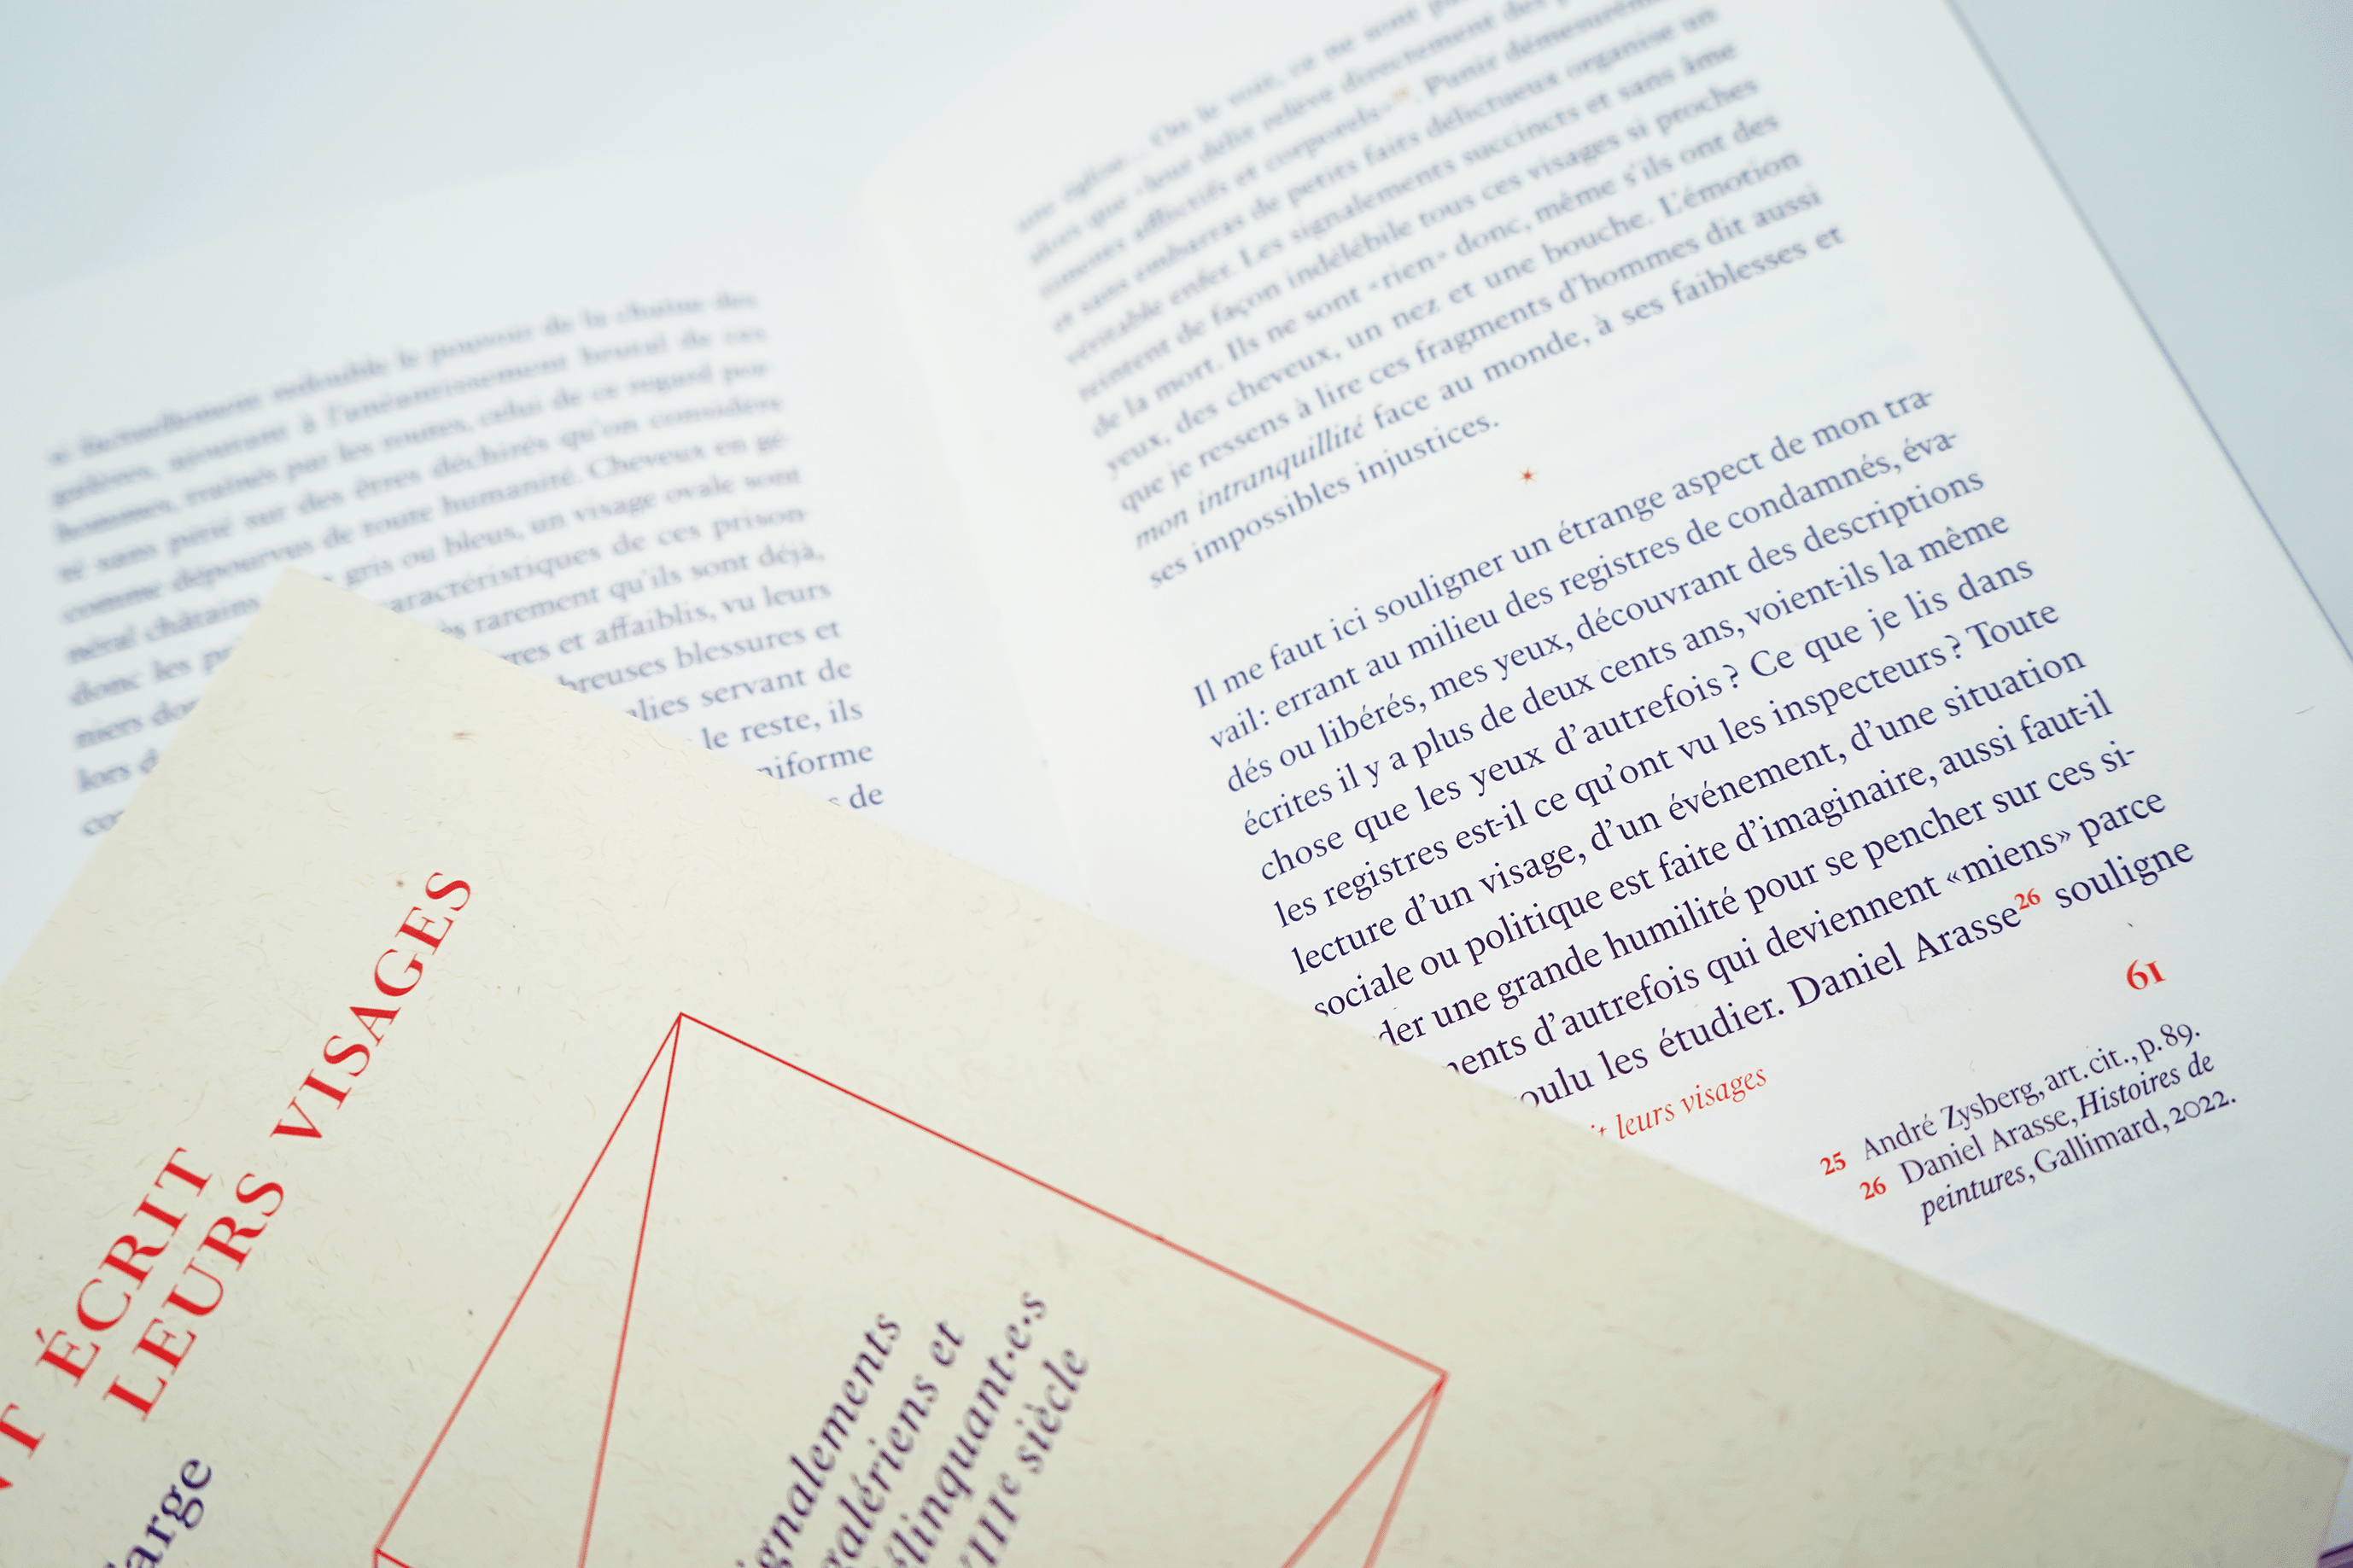 redouble le pouvoir de la chaîne des
galères, ajoutant à l'anéantissement brutal de ces
hommes, traînés par les routes, celui de ce regard por-
té sans pitié sur des êtres déchirés qu'on considère
comme dépourvus de toute humanité. Cheveux en gé-
néral châtains gris ou bleus, un visage ovale sont
donc les aractéristiques de ces prison-
niers rarement qu'ils sont déjà,
lors rres et affaiblis, vu leurs
breuses blessures et
alies servant de
le reste, ils
niforme
de
une église... On le voit, ce ne sont
que «leur délit relève directement des
afflictifs et corporels» . Punir démesurément
et sans embarras de petits faits délictueux organise un
véritable enfer. Les signalements succincts et sans âme
teintent de façon indélébile tous ces visages si proches
de la mort. Ils ne sont «rien» donc, même s'ils ont des
yeux, des cheveux, un nez et une bouche. L'émotion
que je ressens à lire ces fragments d'hommes dit aussi
mon intranquillité face au monde, à ses faiblesses et
ses impossibles injustices.
Il me faut ici souligner un étrange aspect de mon tra-
vail: errant au milieu des registres de condamnés, éva-
dés ou libérés, mes yeux, découvrant des descriptions
écrites il y a plus de deux cents ans, voient-ils la même
chose que les yeux d'autrefois? Ce que je lis dans
les registres est-il ce qu'ont vu les inspecteurs? Toute
lecture d'un visage, d'un événement, d'une situation
sociale ou politique est faite d'imaginaire, aussi faut-il
der une grande humilité pour se pencher sur ces si-
ments d'autrefois qui deviennent «miens» parce
oulu les étudier. Daniel Arasse26 souligne
61
leurs visages
25 André Zysberg, art. cit., p. 89.
26 Daniel Arasse, Histoires de
peintures, Gallimard, 2022.
T ÉCRIT
LEURS VISAGES
arge
ignalements
galériens et
élinquant·e·s
IIIe siècle